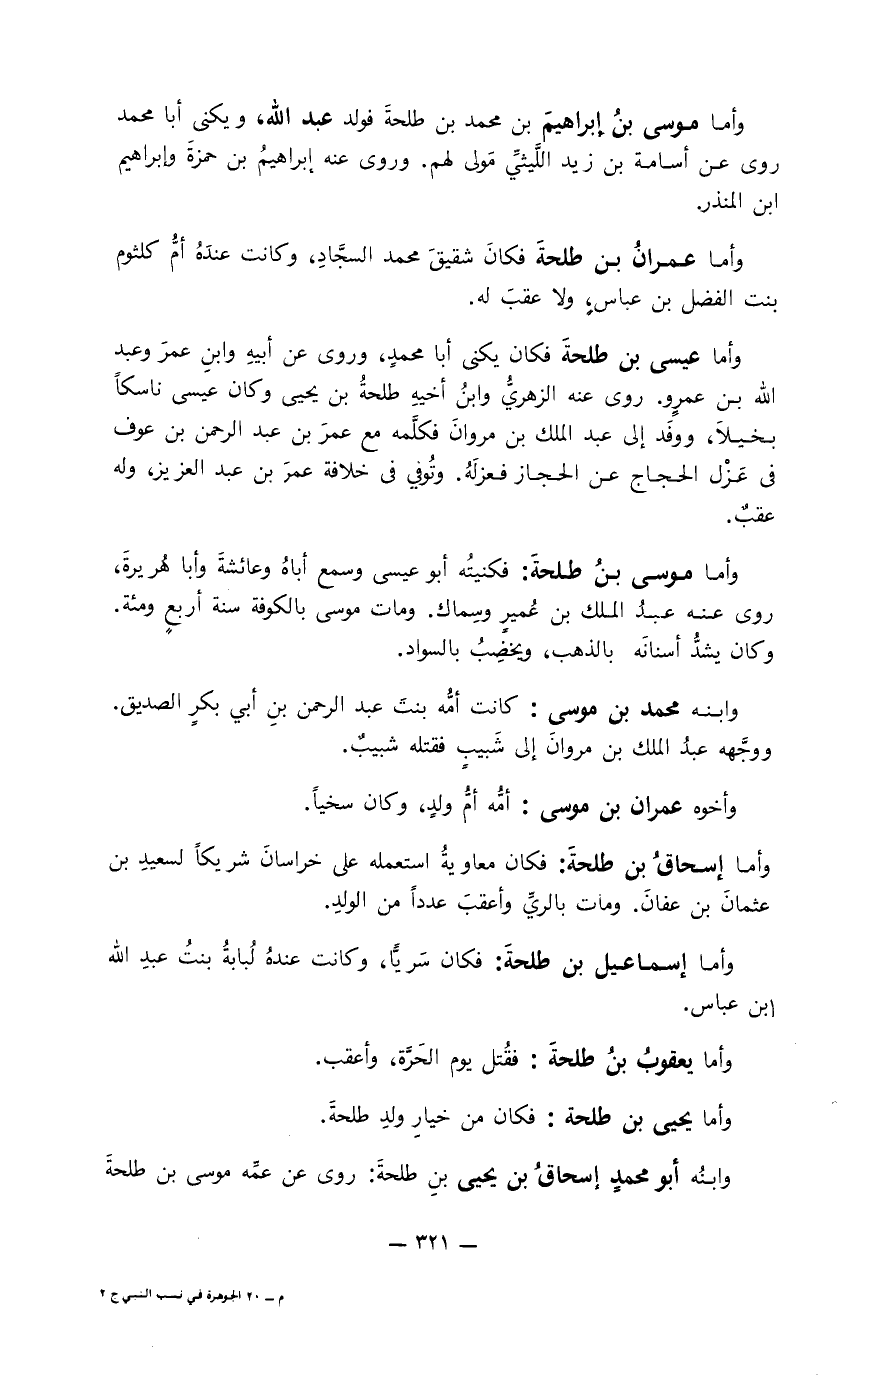 وأما موسى بنُ إبراهيمَ بن محمد بن طلحةَ فولد عبد الله، ويكنى أبا محمد
روى عن أسامة بن زيد اللَّيثيِّ مَولى لهم. وروى عنه إبراهيمُ بن حمزةَ وإبراهيم
ابن المنذر.
وأما عمرانُ بن طلحةَ فكانَ شقيقَ محمد السجَّادِ، وكانت عندَهُ أمُّ كلثوم
بنت الفضل بن عباسٍ، ولا عقبَ له.
وأما عيسى بن طلحةَ فكان يكنى أبا محمدٍ، وروى عن أبيهِ وابنِ عمرَ وعبد
الله بن عمرٍو. روى عنه الزهريُّ وابنُ أخيهِ طلحةُ بن يحيى وكان عيسى ناسكاً
بخيلاً، ووفَد إلى عبد الملك بن مروانَ فكلَّمه مع عمرَ بن عبد الرحمن بن عوف
في عَزْل الحجاج عن الحجاز فعزلَهُ. وتُوفي في خلافة عمرَ بن عبد العزيز، وله
عقبٌ.
وأما موسى بنُ طلحةَ: فكنيتُه أبو عيسى وسمع أباهُ وعائشةَ وأبا هُريرةَ،
روى عنه عبدُ الملك بن عُميرٍ وسِماك. ومات موسى بالكوفة سنة أربعٍ ومئة.
وكان يشدُّ أسنانَه بالذهب، ويخضِبُ بالسواد.
وابنه محمد بن موسى : كانت أمُّه بنتَ عبد الرحمن بنِ أبي بكرٍ الصديق.
ووجَّهه عبدُ الملك بن مروانَ إلى شَبيبٍ فقتله شبيبٌ.
وأخوه عمران بن موسى : أمُّه أمُّ ولدٍ، وكان سخياً.
وأما إسحاقُ بن طلحةَ: فكان معاويةُ استعمله على خراسانَ شريكاً لسعيدِ بن
عثمانَ بن عفانَ. ومات بالريِّ وأعقبَ عدداً من الولدِ.
وأما إسماعيل بن طلحةَ: فكان سَريًّا، وكانت عندهُ لُبابةُ بنتُ عبدِ الله
ابن عباس.
وأما يعقوبُ بنُ طلحةَ : فقُتل يوم الحَرَّة، وأعقب.
وأما يحيى بن طلحة : فكان من خيارِ ولدِ طلحةَ.
وابنُه أبو محمدٍ إسحاقُ بن يحيى بنِ طلحةَ: روى عن عمِّه موسى بن طلحةَ
– ٣٢١ –
م – ٢٠ الجوهرة في نسب النبي ج ٢